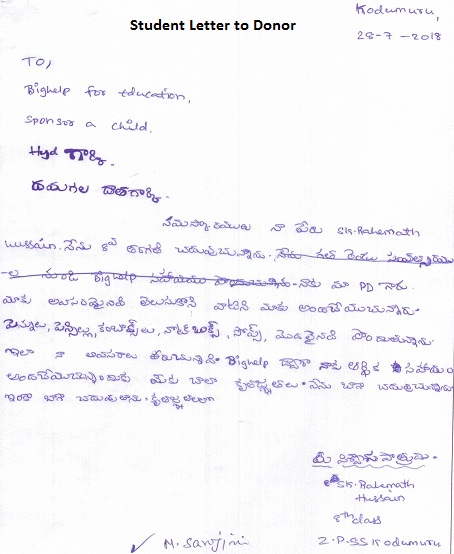 Student Letter to Donor
Kodumuru,
28-7-2018
TO,
Bighelp for education,
sponsor a child.
Hyd గార్కి.
దయగల దాతగార్కి.
నమస్కారములు నా పేరు SK.Rahemath
Hussain. నేను 8వ తరగతి చదువుచున్నాను. నేను గత రెండు సంవత్సరము
ల నుండి Bighelp సహాయము పొందుచున్నాను. నాకు మా PD గారు.
మాకు అవసరమైనవి తెలుసుకొని వాటిని మాకు అందచేయుచున్నారు.
పెన్నులు, పెన్సిల్లు, కంబాక్స్‌లు, నోట్ బుక్స్, సోప్స్, మొదలైనవి పొందుతున్నాను.
ఇలా నా అవసరాలు తీరుచున్నవి. Bighelp ద్వారా నాకు ఆర్థిక సహాయం
అందచేయుచున్నందుకు మీకు చాలా కృతజ్ఞతలు. నేను బాగా చదువుతున్నాను
ఇంకా బాగా చదువుతాను. కృతజ్ఞతలతో
మీ విశ్వాసపాత్రుడు.
SK.Rahemath
Hussain
8th class
Z.P.SS Kodumuru
M. Sanjjini